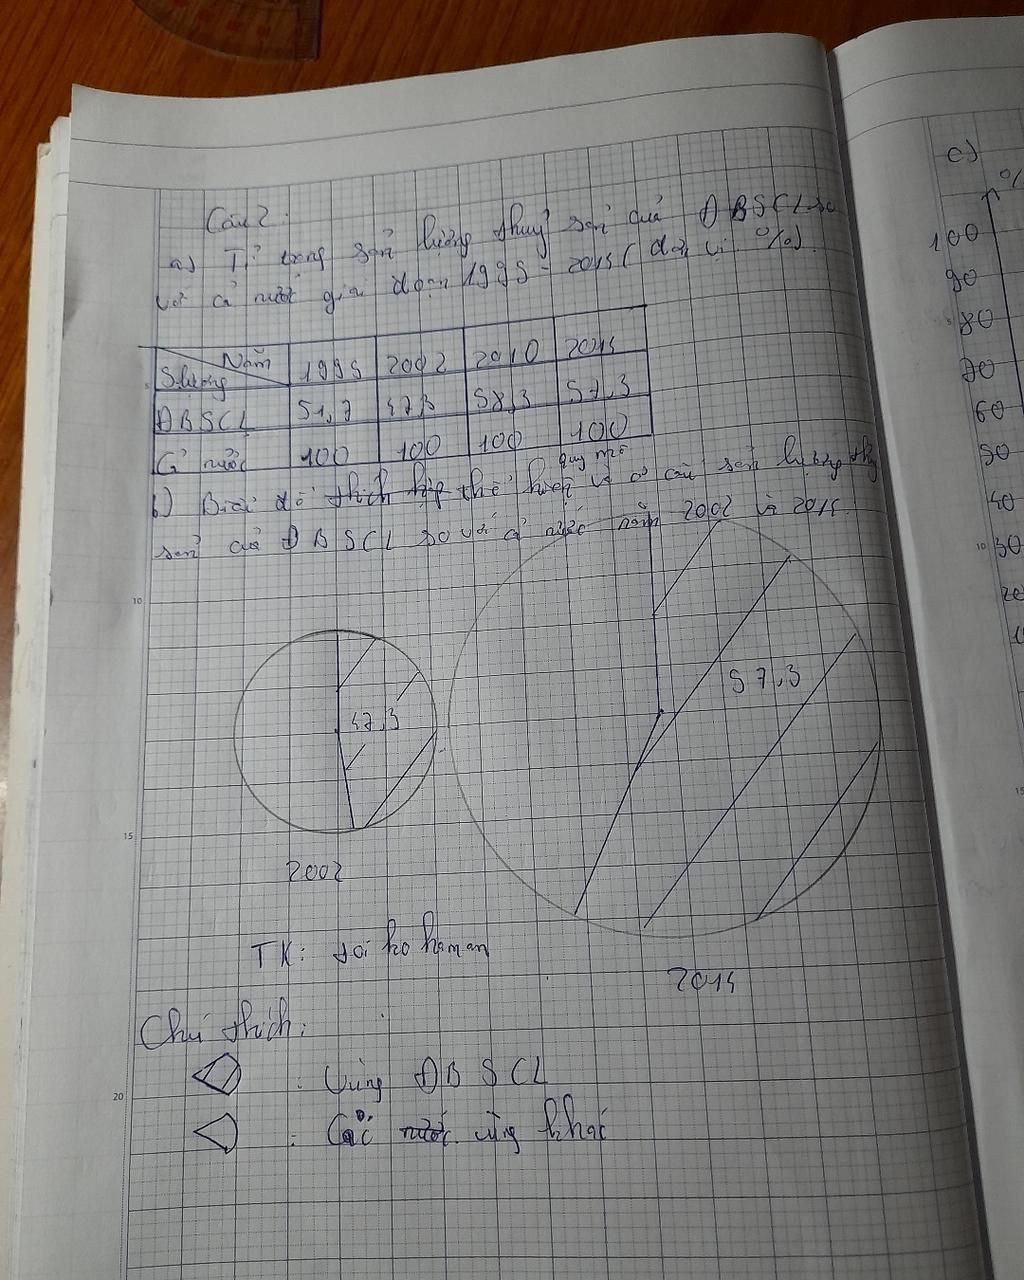 Câu 2:
a) Tỉ trọng sản lượng thuỷ sản của ĐBSCL so
với cả nước giai đoạn 1995 - 2015 (đơn vị %).
Năm 1995 2002 2010 2015
S.lượng
ĐBSCL 51,7 47,3 58,3 57,3
Cả nước 100 100 100 100
quy mô
b) Biểu đồ thích hợp thể hiện và cơ cấu sản lượng thuỷ
sản của ĐBSCL so với cả nước năm 2002 và 2015.
47,3
57,3
2002
2015
TK:
Chú thích:
: Vùng ĐBSCL
: Các nước vùng khác
c)
%
100
90
80
70
60
50
40
30
20
10
15
20